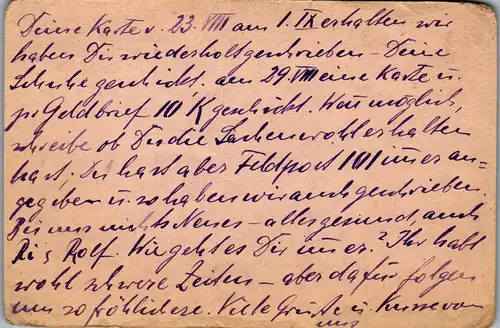 Deine Karte v. 23. VIII am 1. IX erhalten wir
haben Dir wiederholt geschrieben – Deine
Schuhe geschickt. am 29 VIII eine Karte u.
pr Geldbrief 10 K geschickt. Wenn möglich,
schreibe ob Du die Sachen wohl erhalten
hast, Du hast aber Feldpost 101 immer an-
gegeben u. so haben wir auch geschrieben.
Bei uns nichts Neues – alles gesund, auch
Ri s Rolf. Wie geht es Dir immer? Ihr habt
wohl schwere Zeiten – aber dafür folgen
um so fröhlichere. Viele Grüße u. Küsse von
uns